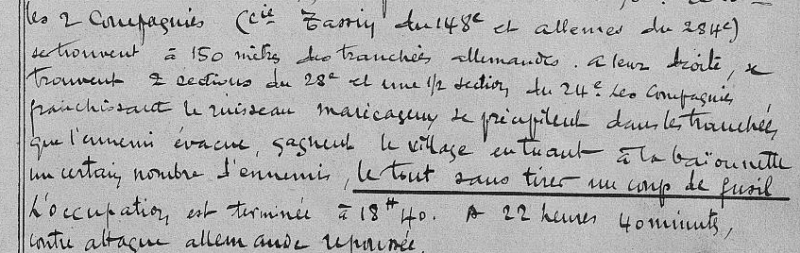 les 2 Compagnies (Cie Tassin du 148e et allemes du 284e)
se trouvent à 150 mètres des tranchées allemandes. A leur droite, se
trouvent 2 sections du 28e et une 1/2 section du 24e. Les Compagnies,
franchissant le ruisseau marécageux, se précipitent dans les tranchées
que l'ennemi évacue, gagnent le village en tuant à la baïonnette
un certain nombre d'ennemis, le tout sans tirer un coup de fusil
L'occupation est terminée à 18H40. A 22 heures 40 minutes,
contre attaque allemande repoussée.